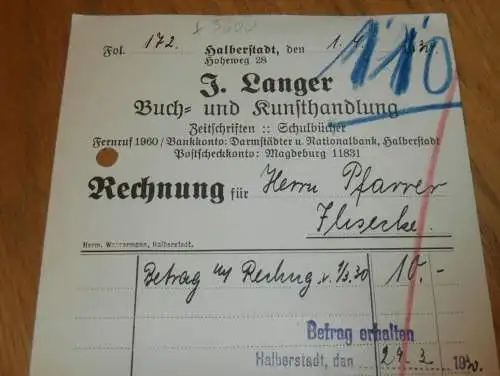 110
Fol. 172. Halberstadt, den 1. 4. 30.
Hoheweg 28
J. Langer
Buch= und Kunsthandlung
Zeitschriften :: Schulbücher
Fernruf 1960 / Bankkonto: Darmstädter u. Nationalbank, Halberstadt
Postscheckkonto: Magdeburg 11831
Rechnung für Herrn Pfarrer
Herm. Halberstadt.
Betrag Rechng v. 1/3.30 10.-
Betrag erhalten
Halberstadt, den 193